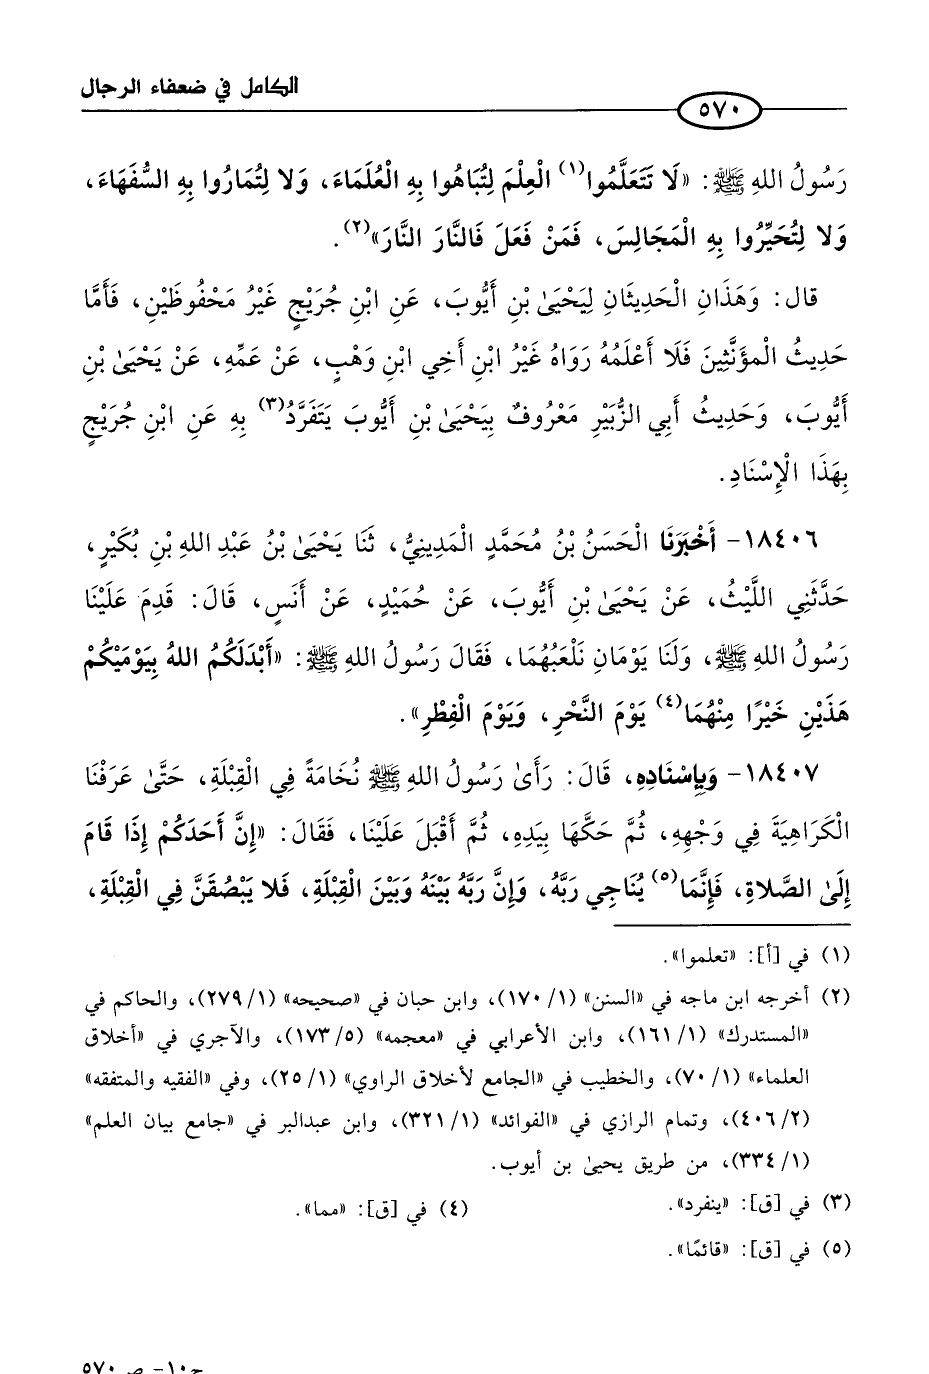 الكامل في ضعفاء الرجال
٥٧٠
رَسُولُ اللهِ ﷺ: «لَا تَتَعَلَّمُوا(١) الْعِلْمَ لِتُبَاهُوا بِهِ الْعُلَمَاءَ، وَلا لِتُمَارُوا بِهِ السُّفَهَاءَ،
وَلا لِتُحَيِّرُوا بِهِ الْمَجَالِسَ، فَمَنْ فَعَلَ فَالنَّارَ النَّارَ»(٢).
قال: وَهَذَانِ الْحَدِيثَانِ لِيَحْيَىٰ بْنِ أَيُّوبَ، عَنِ ابْنِ جُرَيْجٍ غَيْرُ مَحْفُوظَيْنِ، فَأَمَّا
حَدِيثُ الْمؤَنَّثِينَ فَلَا أَعْلَمُهُ رَوَاهُ غَيْرُ ابْنِ أَخِي ابْنِ وَهْبٍ، عَنْ عَمِّهِ، عَنْ يَحْيَىٰ بْنِ
أَيُّوبَ، وَحَدِيثُ أَبِي الزُّبَيْرِ مَعْرُوفٌ بِيَحْيَىٰ بْنِ أَيُّوبَ يَتَفَرَّدُ(٣) بِهِ عَنِ ابْنِ جُرَيْجٍ
بِهَذَا الْإِسْنَادِ.
١٨٤٠٦- أَخْبَرَنَا الْحَسَنُ بْنُ مُحَمَّدٍ الْمَدِينِيُّ، ثَنَا يَحْيَىٰ بْنُ عَبْدِ اللهِ بْنِ بُكَيْرٍ،
حَدَّثَنِي اللَّيْثُ، عَنْ يَحْيَىٰ بْنِ أَيُّوبَ، عَنْ حُمَيْدٍ، عَنْ أَنَسٍ، قَالَ: قَدِمَ عَلَيْنَا
رَسُولُ اللهِ ﷺ، وَلَنَا يَوْمَانِ نَلْعَبُهُمَا، فَقَالَ رَسُولُ اللهِ ﷺ: «أَبْدَلَكُمُ اللهُ بِيَوْمَيْكُمْ
هَذَيْنِ خَيْرًا مِنْهُمَا(٤) يَوْمَ النَّحْرِ، وَيَوْمَ الْفِطْرِ».
١٨٤٠٧- وَبِإِسْنَادِهِ، قَالَ: رَأَىٰ رَسُولُ اللهِ ﷺ نُخَامَةً فِي الْقِبْلَةِ، حَتَّىٰ عَرَفْنَا
الْكَرَاهِيَةَ فِي وَجْهِهِ، ثُمَّ حَكَّهَا بِيَدِهِ، ثُمَّ أَقْبَلَ عَلَيْنَا، فَقَالَ: «إِنَّ أَحَدَكُمْ إِذَا قَامَ
إِلَىٰ الصَّلاةِ، فَإِنَّمَا(٥) يُنَاجِي رَبَّهُ، وَإِنَّ رَبَّهُ بَيْنَهُ وَبَيْنَ الْقِبْلَةِ، فَلا يَبْصُقَنَّ فِي الْقِبْلَةِ،
(١) في [أ]: «تعلموا».
(٢) أخرجه ابن ماجه في «السنن» (١/ ١٧٠)، وابن حبان في «صحيحه» (١/ ٢٧٩)، والحاكم في
«المستدرك» (١/ ١٦١)، وابن الأعرابي في «معجمه» (٥/ ١٧٣)، والآجري في «أخلاق
العلماء» (١/ ٧٠)، والخطيب في «الجامع لأخلاق الراوي» (١/ ٢٥)، وفي «الفقيه والمتفقه»
(٢/ ٤٠٦)، وتمام الرازي في «الفوائد» (١/ ٣٢١)، وابن عبدالبر في «جامع بيان العلم»
(١/ ٣٣٤)، من طريق يحيىٰ بن أيوب.
(٣) في [ق]: «ينفرد». (٤) في [ق]: «مما».
(٥) في [ق]: «قائمًا».
ج١٠- ص ٥٧٠